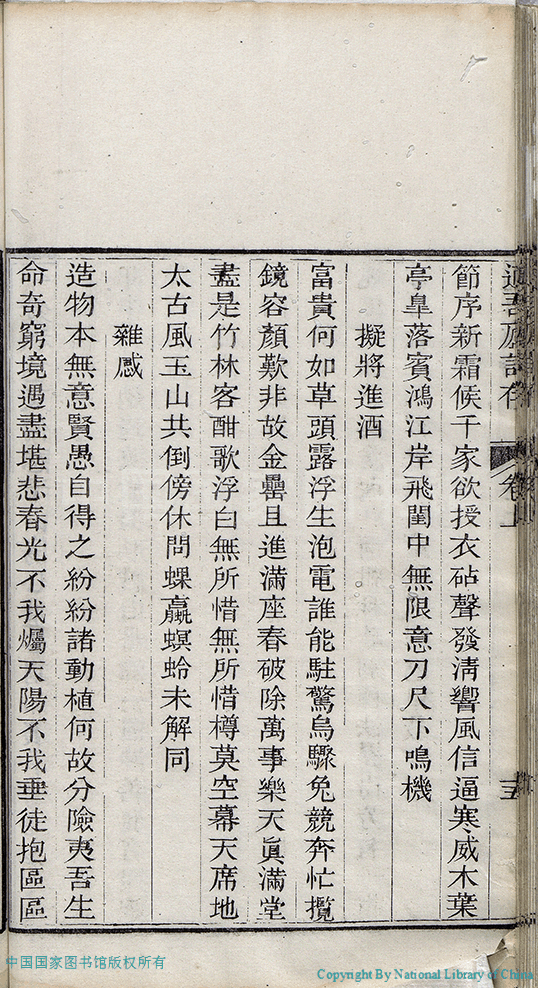 適吾廬詩存 卷上 十五
節序新霜候千家欲授衣砧聲發清響風信逼寒威木葉
亭臯落賓鴻江岸飛閨中無限意刀尺下鳴機
擬將進酒
富貴何如草頭露浮生泡電誰能駐驚烏驟兔競奔忙攬
鏡容顏歎非故金罍且進滿座春破除萬事樂天眞滿堂
盡是竹林客酣歌浮白無所惜無所惜樽莫空幕天席地
太古風玉山共倒傍休問蜾蠃螟蛉未解同
雜感
造物本無意賢愚自得之紛紛諸動植何故分險夷吾生
命奇窮境遇盡堪悲春光不我燭天陽不我垂徒抱區區
中国国家图书馆版权所有
Copyright By National Library of China